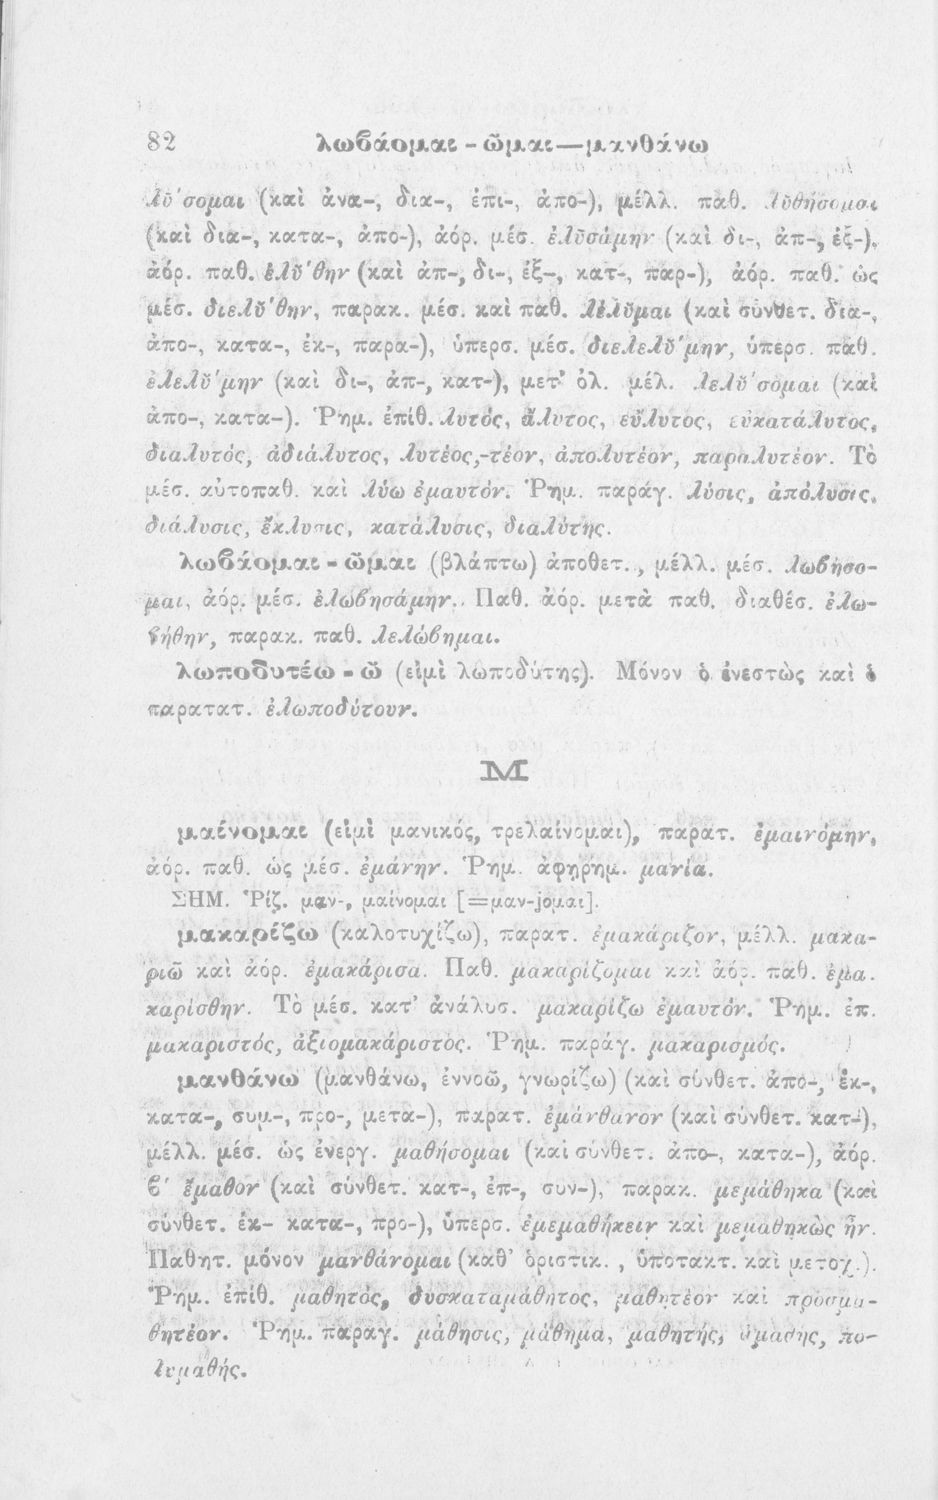 82 λωβάομαι - ῶμαι—μανθάνω
λῡ́σομαι (καὶ ἀνα-, δια-, ἐπι-, ἀπο-), μέλλ. παθ. λῠθήσομαι
(καὶ δια-, κατα-, ἀπο-), ἀόρ. μέσ. ἐλῡσάμην (καὶ δι-, ἀπ-, ἐξ-),
ἀόρ. παθ. ἐλῠ́θην (καὶ ἀπ-, δι-, ἐξ-, κατ-, παρ-), ἀόρ. παθ. ὡς
μέσ. διελῠ́θην, παρακ. μέσ. καὶ παθ. λέλῠμαι (καὶ σύνθετ. δια-,
ἀπο-, κατα-, ἐκ-, παρα-), ὑπερσ. μέσ. διελελῠ́μην, ὑπερσ. παθ.
ἐλελῠ́μην (καὶ δι-, ἀπ-, κατ-), μετ' ὀλ. μέλ. λελῡ́σομαι (καὶ
ἀπο-, κατα-). Ῥημ. ἐπίθ. λυτός, ἄλυτος, εὔλυτος, εὐκατάλυτος,
διαλυτός, ἀδιάλυτος, λυτέος,-τέον, ἀπολυτέον, παραλυτέον. Τὸ
μέσ. αὐτοπαθ. καὶ λύω ἐμαυτόν. Ῥημ. παράγ. λύσις, ἀπόλυσις,
διάλυσις, ἔκλυσις, κατάλυσις, διαλύτης.
λωβάομαι - ῶμαι (βλάπτω) ἀποθετ., μέλλ. μέσ. λωβήσο-
μαι, ἀόρ. μέσ. ἐλωβησάμην. Παθ. ἀόρ. μετὰ παθ. διαθέσ. ἐλω-
βήθην, παρακ. παθ. λελώβημαι.
λωποδυτέω - ῶ (εἰμὶ λωποδύτης). Μόνον ὁ ἐνεστὼς καὶ ὁ
παρατατ. ἐλωποδύτουν.
Μ
μαίνομαι (εἰμὶ μανικός, τρελαίνομαι), παρατ. ἐμαινόμην,
ἀόρ. παθ. ὡς μέσ. ἐμάνην. Ῥημ. ἀφηρημ. μανία.
ΣΗΜ. Ῥίζ. μαν-, μαίνομαι [=μαν-jομαι].
μακαρίζω (καλοτυχίζω), παρατ. ἐμακάριζον, μέλλ. μακα-
ριῶ καὶ ἀόρ. ἐμακάρισα. Παθ. μακαρίζομαι καὶ ἀόρ. παθ. ἐμα-
καρίσθην. Τὸ μέσ. κατ' ἀνάλυσ. μακαρίζω ἐμαυτόν. Ῥημ. ἐπ.
μακαριστός, ἀξιομακάριστος. Ῥημ. παράγ. μακαρισμός.
μανθάνω (μανθάνω, ἐννοῶ, γνωρίζω) (καὶ σύνθετ. ἀπο-, ἐκ-,
κατα-, συμ-, προ-, μετα-), παρατ. ἐμάνθανον (καὶ σύνθετ. κατ-),
μέλλ. μέσ. ὡς ἐνεργ. μαθήσομαι (καὶ σύνθετ. ἀπο-, κατα-), ἀόρ.
β' ἔμαθον (καὶ σύνθετ. κατ-, ἐπ-, συν-), παρακ. μεμάθηκα (καὶ
σύνθετ. ἐκ- κατα-, προ-), ὑπερσ. ἐμεμαθήκειν καὶ μεμαθηκὼς ἦν.
Παθητ. μόνον μανθάνομαι (καθ' ὁριστικ. , ὑποτακτ. καὶ μετοχ.).
Ῥημ. ἐπίθ. μαθητός, δυσκαταμάθητος, μαθητέον καὶ προσμα-
θητέον. Ῥημ. παραγ. μάθησις, μάθημα, μαθητής, ἀμαθής, πο-
λυμαθής.